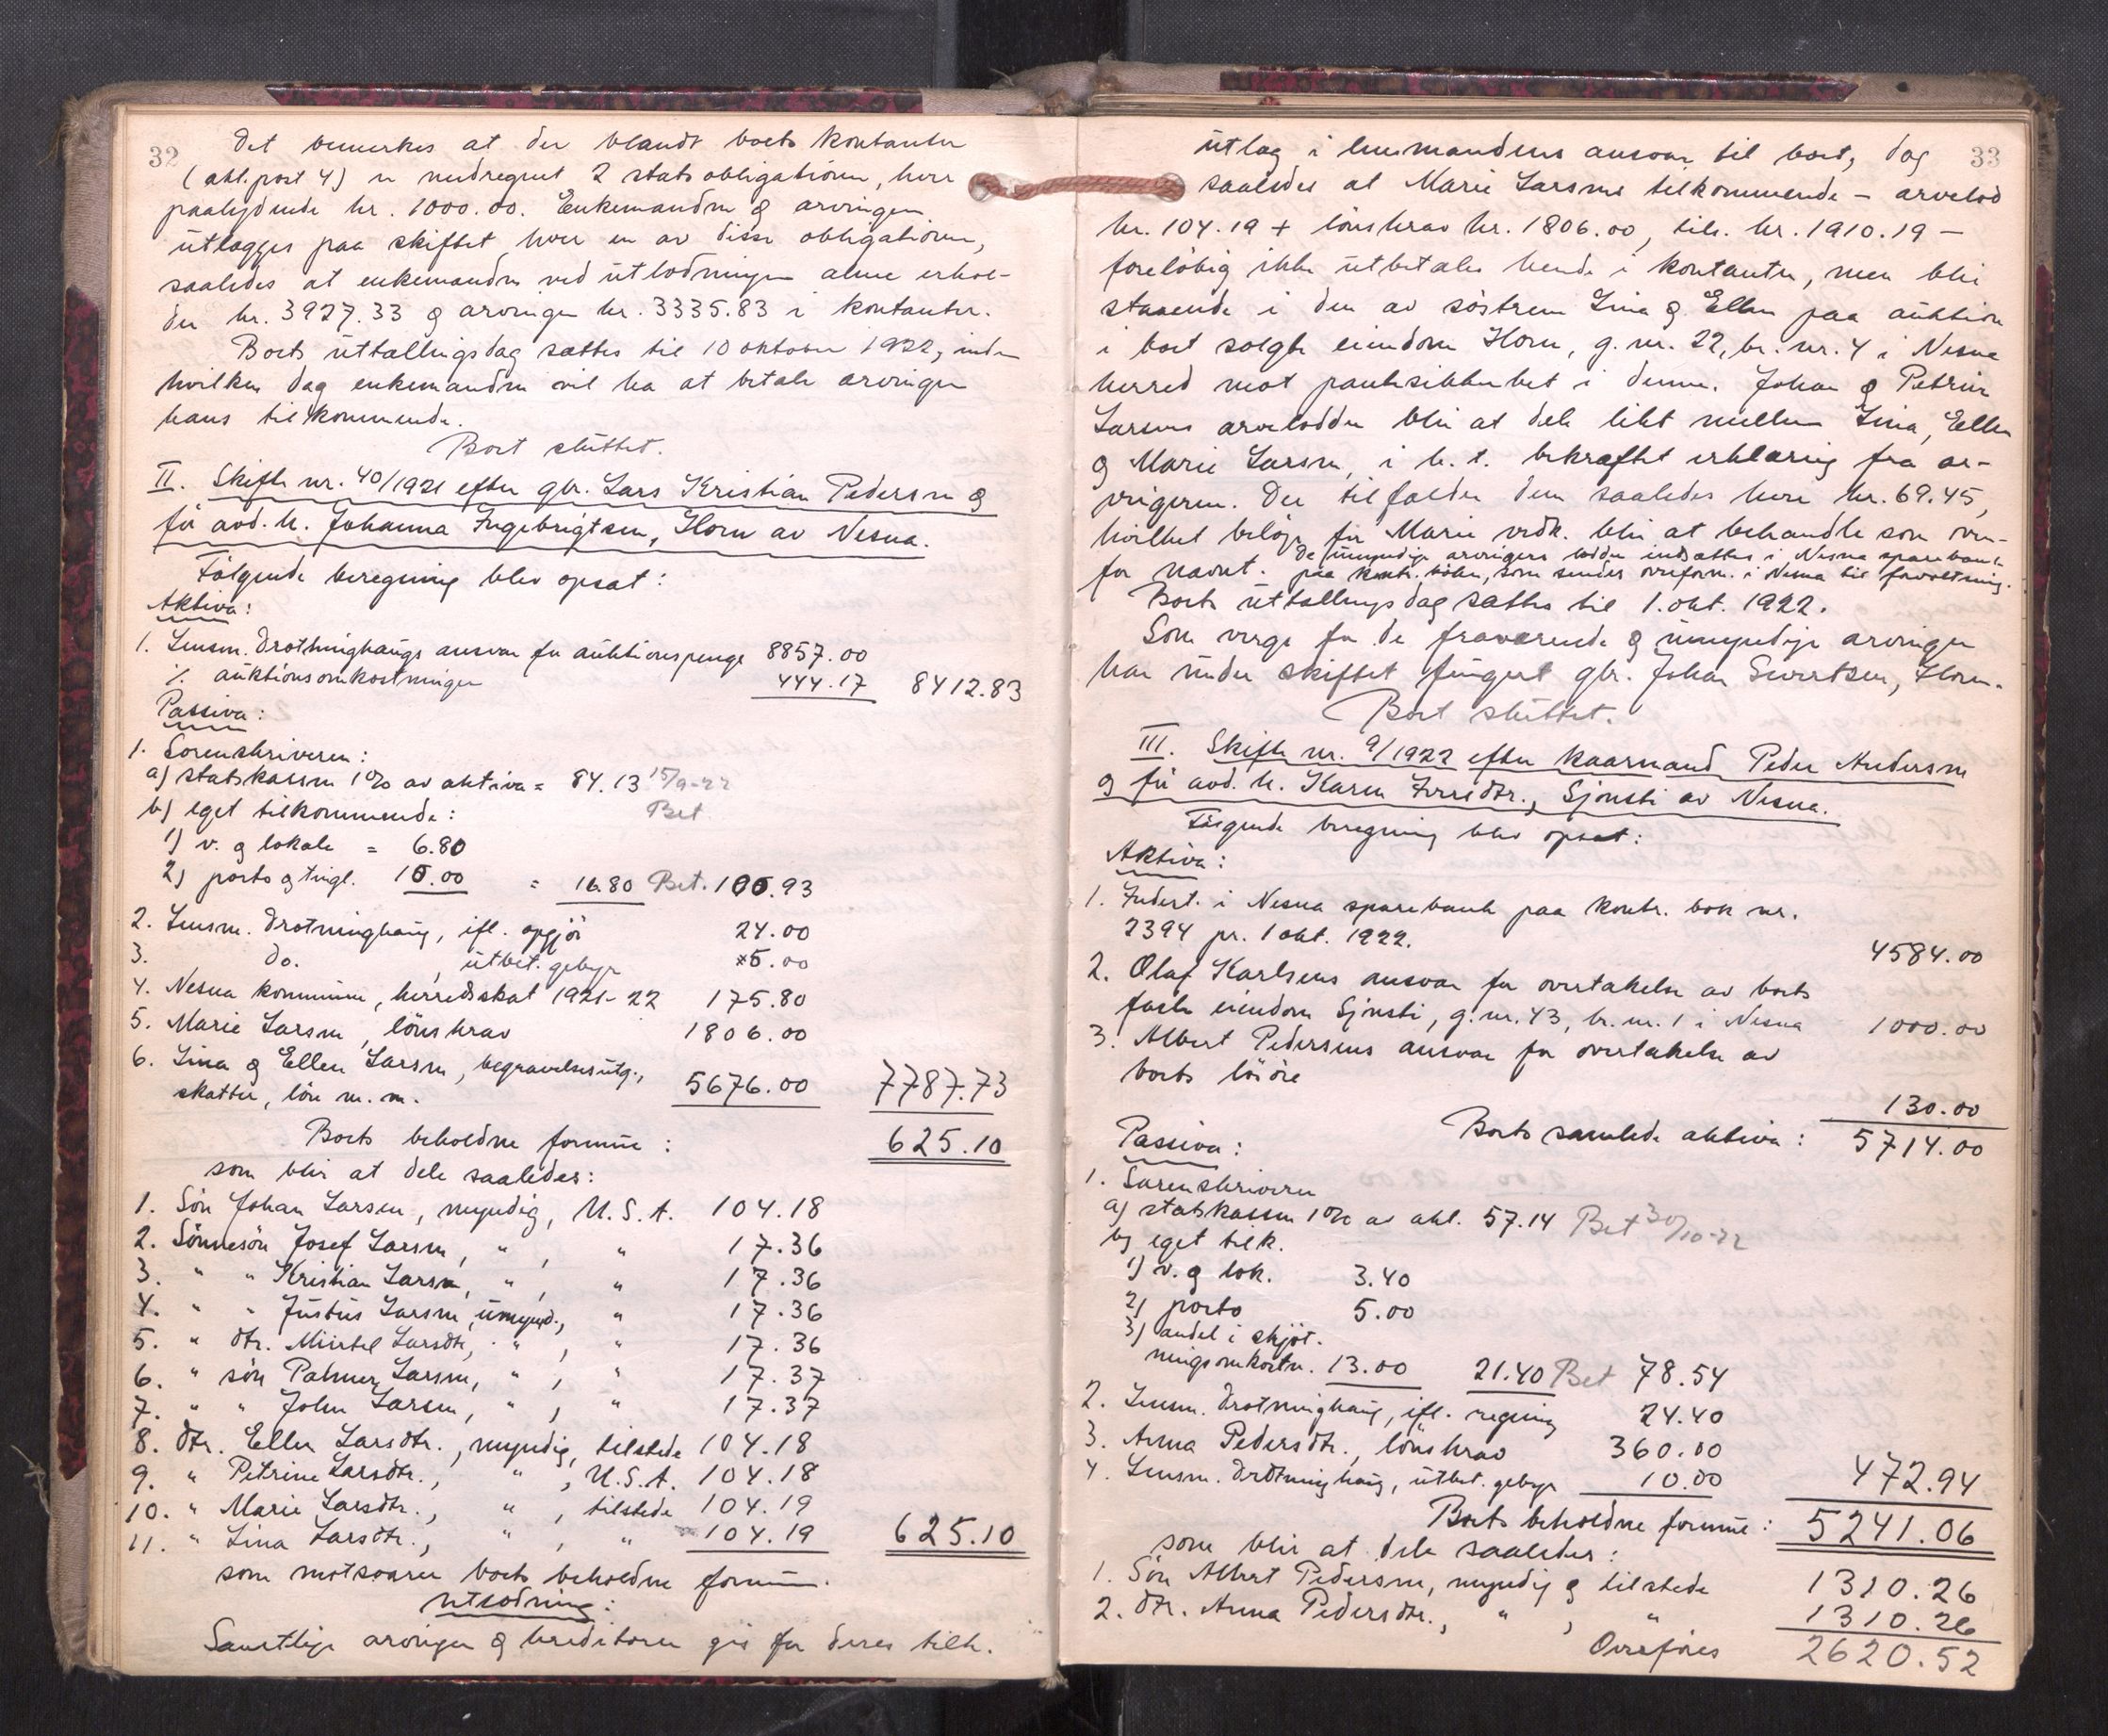 32
Det bemerkes at der blandt boets kontanter
(akt. post 4) er medregnet 2 statsobligationer, hver
paalydende kr. 1000.00. Enkemanden & arvingen
utlægges paa skiftet hver en av disse obligationer,
saaledes at enkemanden ved utlodningen alene erhol-
der kr. 3927.33 & arvingen kr. 3335.83 i kontanter.
Boets uttællingsdag sættes til 10 oktober 1922, inden
hvilken dag enkemanden vil ha at betale arvingen
hans tilkommende.
Boet sluttet.
II. Skifte nr. 40/1921 efter gbr. Lars Kristian Pedersen &
før avd. h. Johanna Ingebrigtsen, Horn av Nesna.
Følgende beregning blev opsat:
Aktiva:
1. Lensm. Drotninghaugs ansvar for auktionspenge 8857.00
% auktionsomkostninger 444.17 8412.83
Passiva:
1. Sorenskriveren:
a) statskassen 1% av aktiva = 84.13 15/9-22
b) eget tilkommende: Bet
1) v. & lokale = 6.80
2) porto & tingl. 10.00 = 16.80 Bet. 100.93
2. Lensm. Drotninghaug, ifl. opgjør 24.00
3. do. , utbet. gebyr 5.00
4. Nesna kommune, herredsskat 1921-22 175.80
5. Marie Larsen, lønskrav 1806.00
6. Lina & Ellen Larsen, begravelsesutg.,
skatter, løn m. m. 5676.00 7787.73
Boets beholdne formue: 625.10
som blir at dele saaledes:
1. Søn Johan Larsen, myndig, U.S.A. 104.18
2. Sønnesøn Josef Larsen, " , " 17.36
3. " " Kristian Larsen, " , " 17.36
4. " " Justus Larsen, umynd., " 17.36
5. " dtr. Mirtel Larsdtr., " , " 17.36
6. " søn Palmer Larsen, " , " 17.37
7. " " John Larsen, " , " 17.37
8. Dtr. Ellen Larsdtr., myndig, tilstede 104.18
9. " Petrine Larsdtr., " , U.S.A. 104.18
10. " Marie Larsdtr., " , tilstede 104.19
11. " Lina Larsdtr., " , " 104.19 625.10
som motsvarer boets beholdne formue.
Utlodning:
Samtlige arvinger & kreditorer gis for deres tilk.
33
utlæg i lensmandens ansvar til boet, dog
saaledes at Marie Larsens tilkommende – arvelod
kr. 104.19 + lønskrav kr. 1806.00, tils. kr. 1910.19 –
foreløbig ikke utbetales hende i kontanter, men blir
staaende i den av søstrene Lina & Ellen paa auktion
i boet solgte eiendom Horn, g. nr. 22, br. nr. 4 i Nesna
herred mot pantesikkerhet i denne. Johan & Petrine
Larsens arvelodder blir at dele likt mellem Lina, Ellen
& Marie Larsen, i h. t. bekræftet erklæring fra ar-
vingerne. Der tilfalder dem saaledes hver kr. 69.45,
hvilket beløp for Marie vedk. blir at behandle som oven-
for nævnt. De umyndige arvingers lodder indsættes i Nesna sparebank
paa kontr. bøker, som sendes overform. i Nesna til forvaltning.
Boets uttællingsdag sættes til 1. okt. 1922.
Som verge for de fraværende & umyndige arvinger
har under skiftet fungert gbr. Johan Sivertsen, Horn.
Boet sluttet.
III. Skifte nr. 9/1922 efter kaarmand Peder Andersen
& før avd. h. Karen Iversdtr., Sjonsti av Nesna.
Følgende beregning blev opsat:
Aktiva:
1. Indest. i Nesna sparebank paa kontr. bok nr.
2394 pr. 1 okt. 1922. 4584.00
2. Olaf Karlsens ansvar for overtakelse av boets
faste eiendom Sjonsti, g. nr. 43, br. nr. 1 i Nesna 1000.00
3. Albert Pedersens ansvar for overtakelse av
boets løsøre 130.00
Boets samlede aktiva: 5714.00
Passiva:
1. Sorenskriveren
a) statskassen 1% av akt. 57.14 Bet 30/10-22
b) eget tilk.
1) v. & lok. 3.40
2) porto 5.00
3) andel i skjøt-
ningsomkostn. 13.00 21.40 Bet 78.54
2. Lensm. Drotninghaug, ifl. regning 24.40
3. Anna Pedersdtr., lønskrav 360.00
4. Lensm. Drotninghaug, utbet. gebyr 10.00 472.94
Boets beholdne formue: 5241.06
som blir at dele saaledes:
1. Søn Albert Pedersen, myndig & tilstede 1310.26
2. Dtr. Anna Pedersdtr., " , " 1310.26
Overføres 2620.52